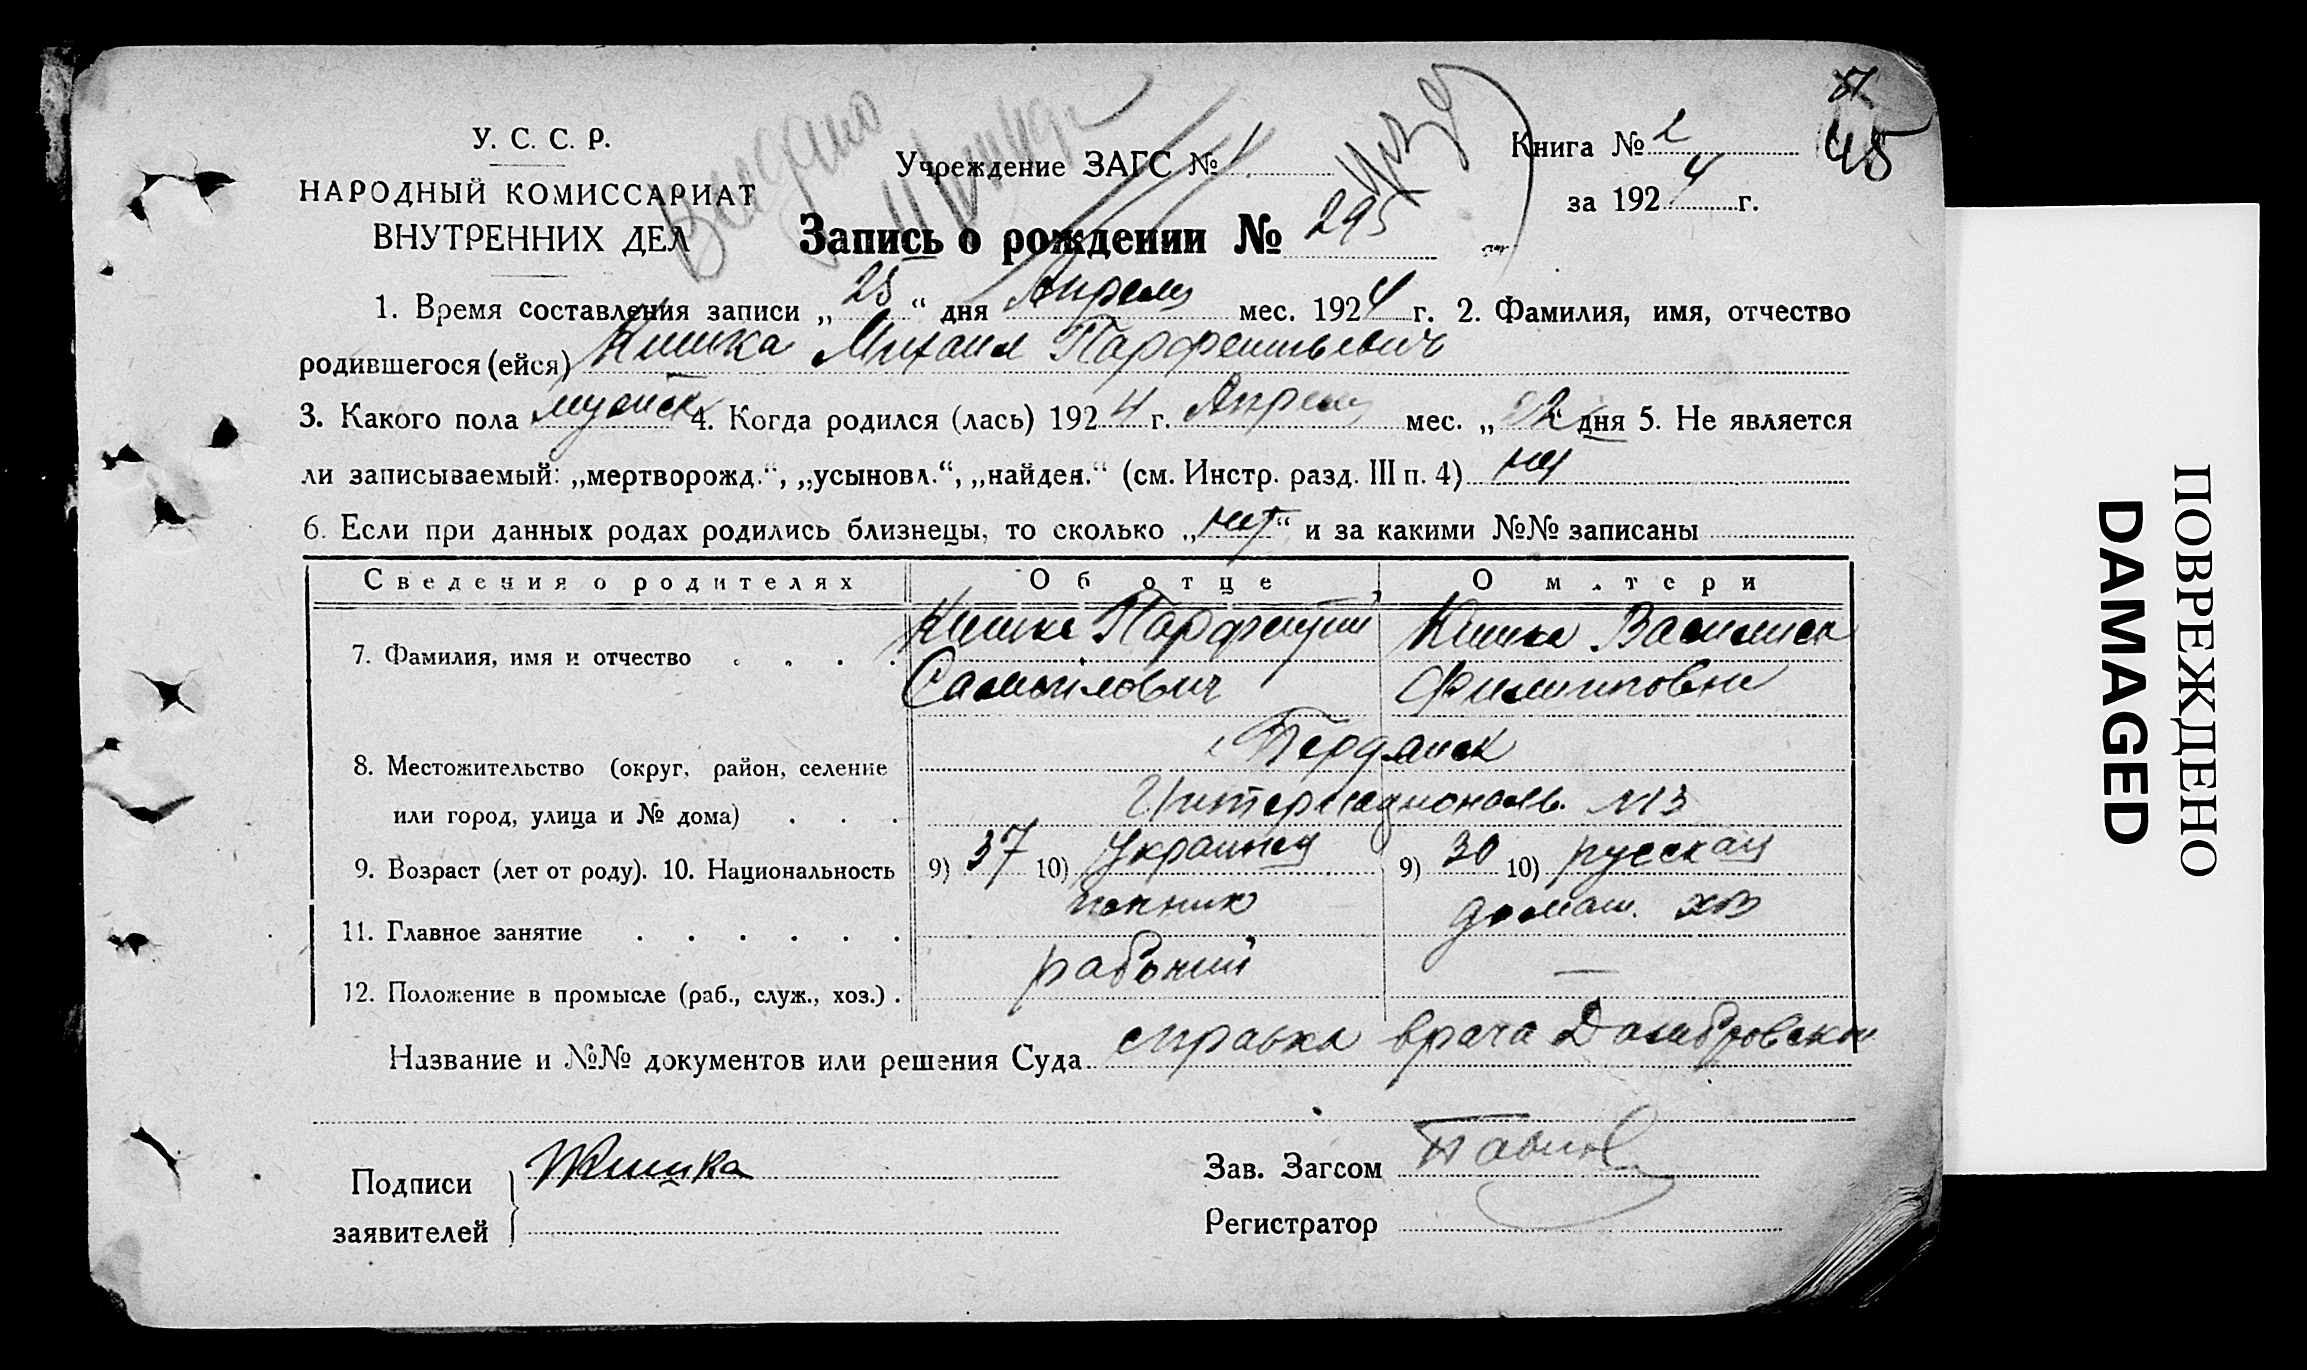 51
45
У. С. С. Р.
НАРОДНЫЙ КОМИССАРИАТ
ВНУТРЕННИХ ДЕЛ
Учреждение ЗАГС № 1
Книга № 2
за 1924 г.
Запись о рождении № 295
1. Время составления записи „25“ дня Апреля мес. 1924 г. 2. Фамилия, имя, отчество
родившегося (ейся) Кишка Михаил Парфентьевич
3. Какого пола мужск 4. Когда родился (лась) 1924 г. Апреля мес. „22 дня 5. Не является
ли записываемый: „мертворожд.“, „усыновл.“, „найден.“ (см. Инстр. разд. III п. 4) нет
6. Если при данных родах родились близнецы, то сколько „нет“ и за какими №№ записаны
Сведения о родителях Об отце О м.тери
7. Фамилия, имя и отчество Кишка Парфентий Кишка Василиса
Самойлович Филипповна
Бердянск
8. Местожительство (округ, район, селение
или город, улица и № дома) Интернациональ. №13
9. Возраст (лет от роду). 10. Национальность 9) 37 10) Украинец 9) 30 10) русская
11. Главное занятие домаш. хоз
12. Положение в промысле (раб., служ., хоз.) рабочий —
Название и №№ документов или решения Суда справка врача Домбровской
Подписи
заявителей
Кишка
Зав. Загсом Павлов
Регистратор
ПОВРЕЖДЕНО
DAMAGED